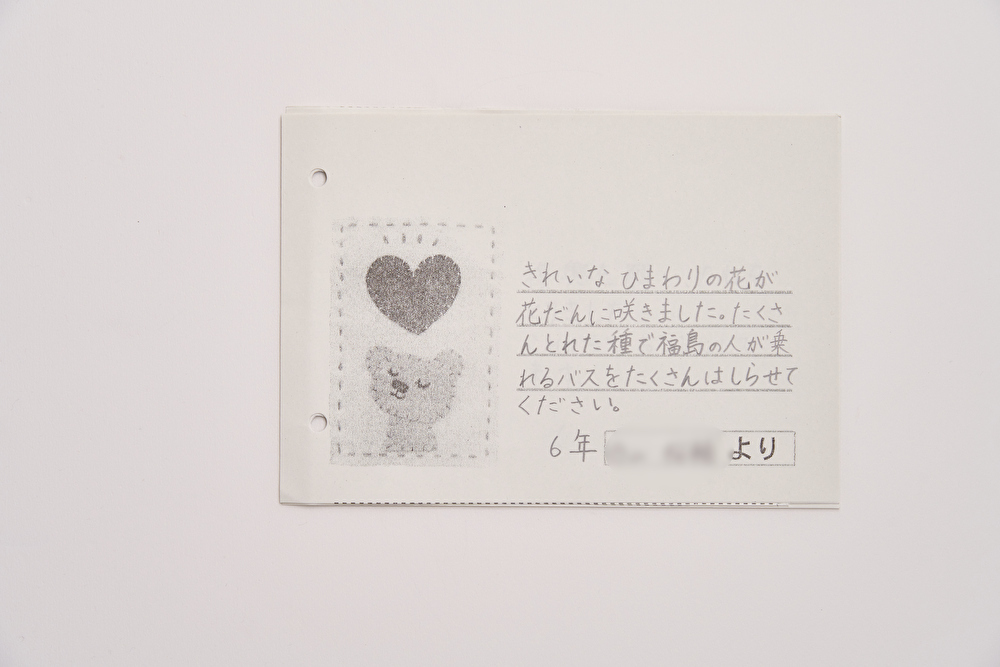 きれいなひまわりの花が
花だんに咲きました。たくさ
んとれた種で福島の人が乗
れるバスをたくさんはしらせて
ください。
6年 より